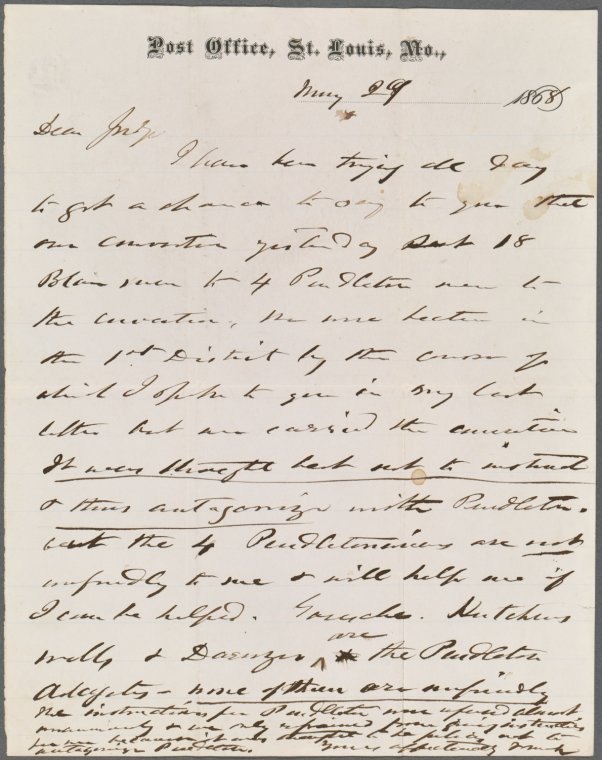 Post Office, St. Louis, Mo.,
May 29 1868
Dear Judge
I have been trying all day
to get a chance to say to you that
our convention yesterday sent 18
Blair men to 4 Pendleton men to
the convention. We were beaten in
the 1st District by the course of
which I spoke to you in my last
letter but we carried the convention
It was thought best not to instruct
& thus antagonize with Pendleton.
but the 4 Pendletonians are not
unfriendly to me & will help me if
I can be helped. Hutchins
Wells & are the Pendleton
delegates - none of them are unfriendly
The instructions for Pendleton were refused almost
unanimously & we only refrained from giving instructions
for me because it was thought to be policy not to
antagonize Pendleton. Yours affectionately Frank